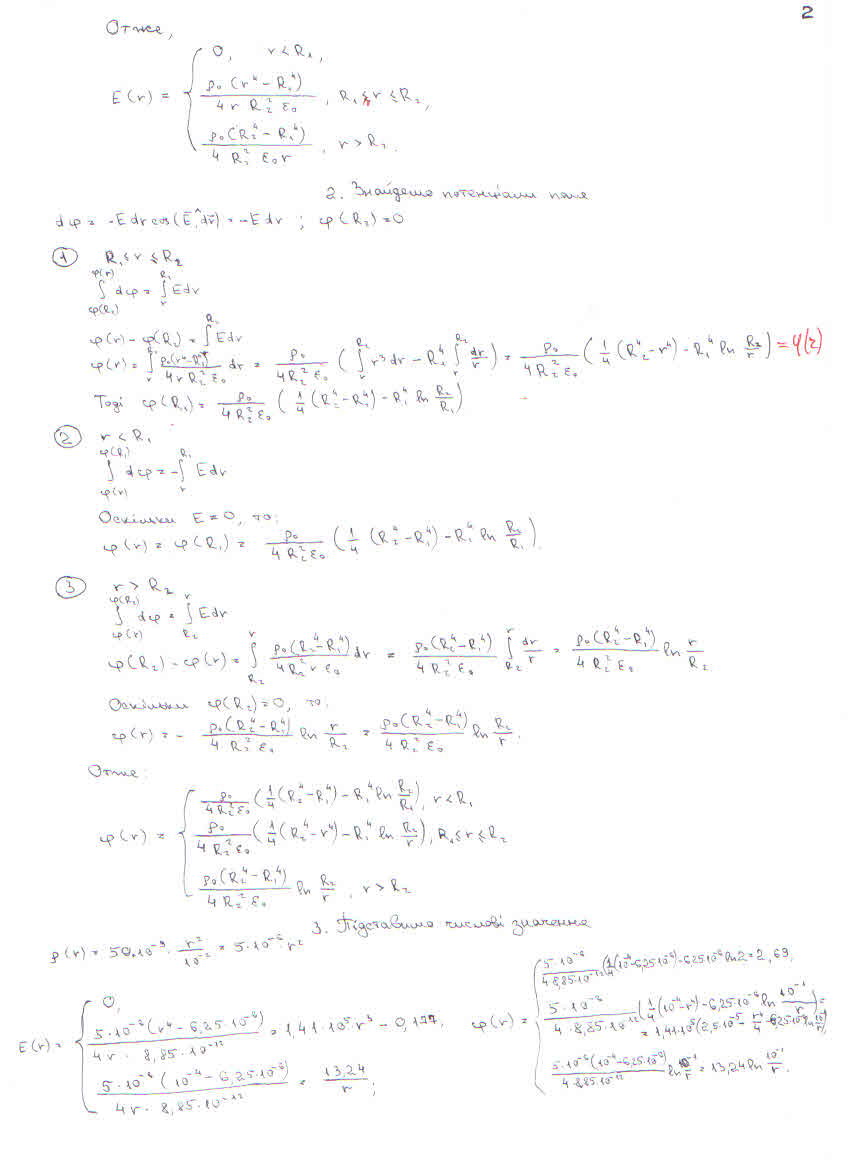 2
Отже,
E(r) = { 0, r < R₁,
ρ₀(r⁴ − R₁⁴) / (4 r R₂² ε₀), R₁ ≤ r ≤ R₂,
ρ₀(R₂⁴ − R₁⁴) / (4 R₂² ε₀ r), r > R₂.
2. Знайдемо потенціали поля
dφ = −E dr cos(E,^dr) = −E dr ; φ(R₂) = 0
① R₁ ≤ r ≤ R₂
∫_{φ(R₂)}^{φ(r)} dφ = ∫_r^{R₂} E dr
φ(r) − φ(R₂) = ∫_r^{R₂} E dr
φ(r) = ∫_r^{R₂} ρ₀(r⁴ − R₁⁴) / (4 r R₂² ε₀) dr = ρ₀ / (4 R₂² ε₀) ( ∫_r^{R₂} r³ dr − R₁⁴ ∫_r^{R₂} dr/r ) = ρ₀ / (4 R₂² ε₀) ( 1/4 (R₂⁴ − r⁴) − R₁⁴ ln R₂/r ) = φ(r)
Тоді φ(R₁) = ρ₀ / (4 R₂² ε₀) ( 1/4 (R₂⁴ − R₁⁴) − R₁⁴ ln R₂/R₁ )
② r < R₁
∫_{φ(r)}^{φ(R₁)} dφ = −∫_r^{R₁} E dr
Оскільки E = 0, то:
φ(r) = φ(R₁) = ρ₀ / (4 R₂² ε₀) ( 1/4 (R₂⁴ − R₁⁴) − R₁⁴ ln R₂/R₁ ).
③ r > R₂
∫_{φ(r)}^{φ(R₂)} dφ = ∫_{R₂}^r E dr
φ(R₂) − φ(r) = ∫_{R₂}^r ρ₀(R₂⁴ − R₁⁴) / (4 R₂² r ε₀) dr = ρ₀(R₂⁴ − R₁⁴) / (4 R₂² ε₀) ∫_{R₂}^r dr/r = ρ₀(R₂⁴ − R₁⁴) / (4 R₂² ε₀) ln r/R₂
Оскільки φ(R₂) = 0, то:
φ(r) = − ρ₀(R₂⁴ − R₁⁴) / (4 R₂² ε₀) ln r/R₂ = ρ₀(R₂⁴ − R₁⁴) / (4 R₂² ε₀) ln R₂/r.
Отже:
φ(r) = { ρ₀ / (4 R₂² ε₀) ( 1/4 (R₂⁴ − R₁⁴) − R₁⁴ ln R₂/R₁ ), r < R₁
ρ₀ / (4 R₂² ε₀) ( 1/4 (R₂⁴ − r⁴) − R₁⁴ ln R₂/r ), R₁ ≤ r ≤ R₂
ρ₀(R₂⁴ − R₁⁴) / (4 R₂² ε₀) ln R₂/r, r > R₂
3. Підставимо числові значення
ρ(r) = 50·10⁻⁹ · r²/10⁻² = 5·10⁻⁶ · r²
E(r) = { 0,
5·10⁻⁶ (r⁴ − 6,25·10⁻⁶) / (4 r · 8,85·10⁻¹²) = 1,41·10⁵ · r³ −
5·10⁻⁶ (10⁻⁴ − 6,25·10⁻⁶) / (4 r · 8,85·10⁻¹²) = 13,24/r ;
φ(r) = { 5·10⁻⁶ / (4·8,85·10⁻¹²) (1/4 (10⁻⁴ − 6,25·10⁻⁶) − 6,25·10⁻⁶ ln 2 = 2,69,
5·10⁻⁶ / (4·8,85·10⁻¹²) ( 1/4 (10⁻⁴ − r⁴) − 6,25·10⁻⁶ ln 10⁻¹/r ) =
= 1,41·10⁵ (2,5·10⁻⁵ − r⁴/4 − 6,25·10⁻⁶ ln 10⁻¹/r),
5·10⁻⁶ (10⁻⁴ − 6,25·10⁻⁶) / (4·8,85·10⁻¹²) ln 10⁻¹/r = 13,24 ln 10⁻¹/r.